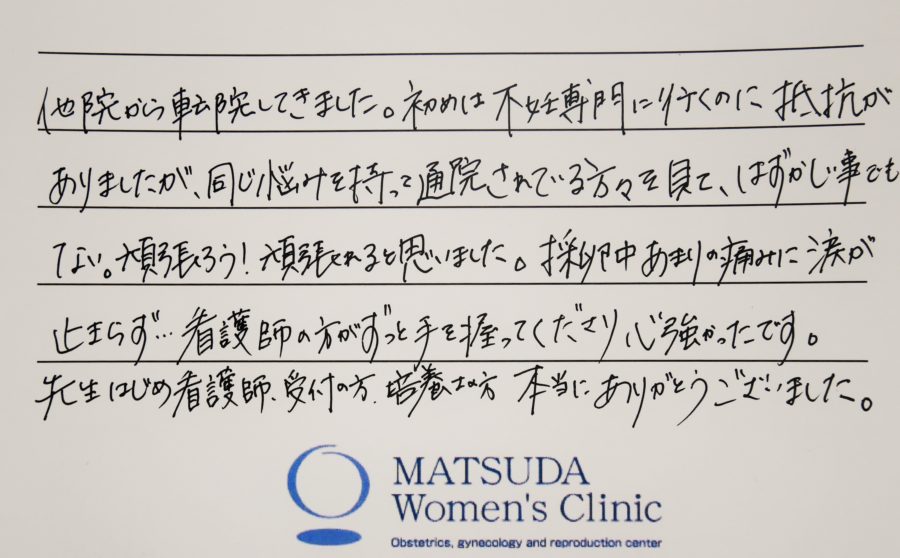 他院から転院してきました。初めは不妊専門に行くのに抵抗が
ありましたが、同じ悩みを持って通院されている方々を見て、はずかしい事でも
ない。頑張ろう！頑張れると思いました。採卵中あまりの痛みに涙が
止まらず…看護師の方がずっと手を握ってくださり心強かったです。
先生はじめ看護師、受付の方、培養士の方 本当にありがとうございました。
MATSUDA
Women's Clinic
Obstetrics, gynecology and reproduction center